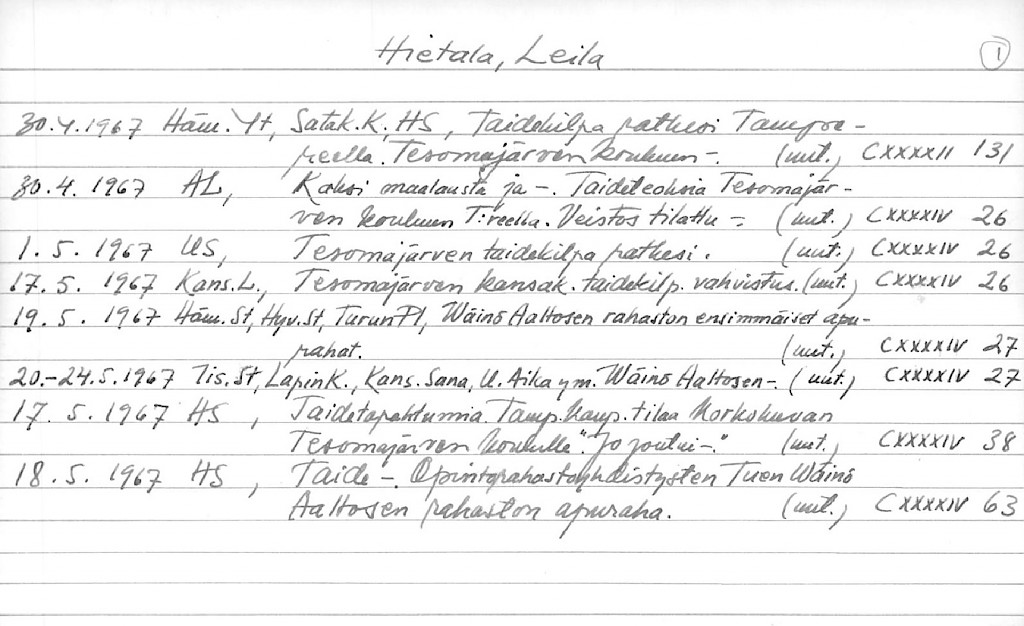 Hietala, Leila 1
30.4.1967 Häm. Yt, Satak. K., HS, Taidekilpa ratkesi Tampe-
reella. Tesomajärven kouluun -. (uut.) CXXXXII 131
30.4. 1967 AL, Kaksi maalausta ja -. Taideteoksia Tesomajär-
ven kouluun T:reella. Veistos tilattu - (uut.) CXXXXIV 26
1. 5. 1967 US, Tesomajärven taidekilpa ratkesi. (uut.) CXXXXIV 26
17. 5. 1967 Kans. L., Tesomajärven kansak. taidekilp. vahvistus. (uut.) CXXXXIV 26
19. 5. 1967 Häm. St, Hyv. St, Turun Pl, Wäinö Aaltosen rahaston ensimmäiset apu-
rahat. (uut.) CXXXXIV 27
20.-24.5.1967 Iis. St, Lapin K., Kans. Sana, U. Aika ym. Wäinö Aaltosen -. (uut.) CXXXXIV 27
17. 5. 1967 HS, Taidetapahtumia. Tamp. kaup. tilaa korkokuvan
Tesomajärven koululle "Jo joutui -." (uut.) CXXXXIV 38
18. 5. 1967 HS, Taide -. Opintorahastoyhdistysten Tuen Wäinö
Aaltosen rahaston apuraha. (uut.) CXXXXIV 63